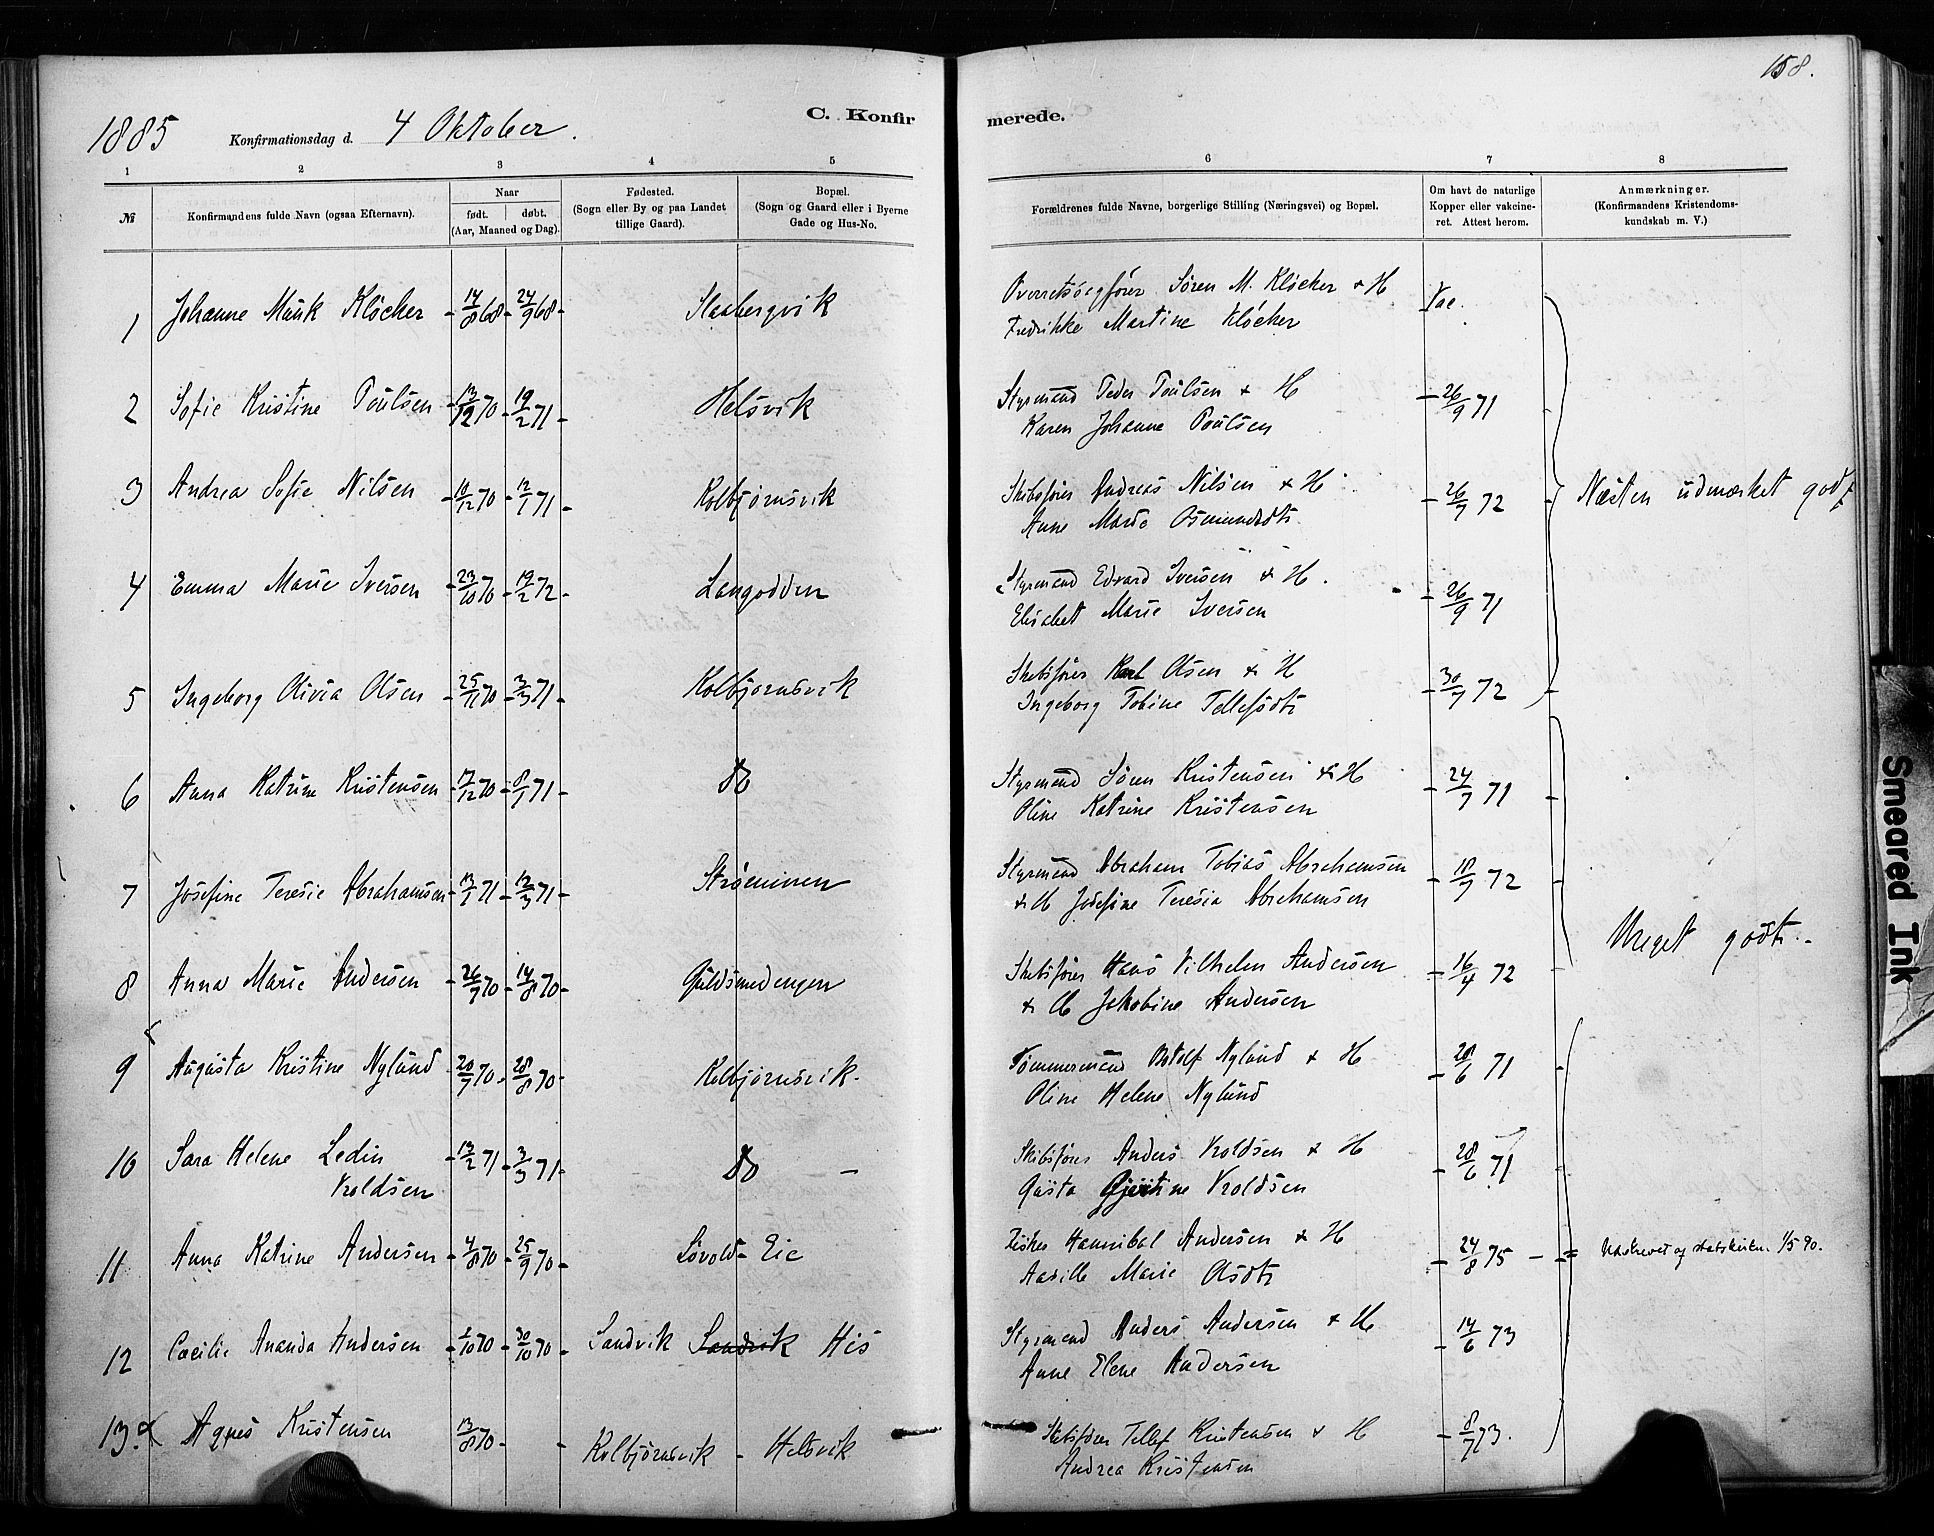 158.
1885 Konfirmationsdag d. 4 Oktober.
C. Konfirmerede.
1 2 3 4 5 6 7 8
№
Konfirmandens fulde Navn (ogsaa Efternavn).
Naar
født. døbt.
(Aar, Maaned og Dag).
Fødested.
(Sogn eller By og paa Landet
tillige Gaard).
Bopæl.
(Sogn og Gaard eller i Byerne
Gade og Hus-No.
Forældrenes fulde Navne, borgerlige Stilling (Næringsvei) og Bopæl.
Om havt de naturlige
Kopper eller vakcine-
ret. Attest herom.
Anmærkninger.
(Konfirmandens Kristendoms-
kundskab m. V.)
1 Johanne Munk Klöcker 14/8 68 24/9 68 Overretssagfører Søren M. Klöcker & H Vac.
Fredrikke Martine Klöcker
2 Sofie Kristine Poulsen 13/12 70 19/2 71 Helsvik Styrmand Peder Poulsen & H 26/9 71
Karen Johanne Poulsen
3 Andrea Sofie Nilsen 10/12 70 12/1 71 Kolbjørnsvik Skibsfører Andreas Nilsen & H 26/7 72 Næsten udmærket godt
Anne Marie Osmundsdt
4 Emma Marie Iversen 23/10 70 19/2 72 Langodden Styrmand Edvard Iversen & H. 26/9 71
Elisabet Marie Iversen
5 Ingeborg Olivia Olsen 25/11 70 3/3 71 Kolbjørnsvik Skibsfører Karl Olsen & H 30/7 72
Ingeborg Tobine Tellefsdt
6 Anna Katrine Kristensen 17/12 70 8/1 71 Do Styrmand Søren Kristensen & H 24/7 71
Oline Katrine Kristensen
7 Josefine Teresie Abrahamsen 13/1 71 12/3 71 Strømmen Styrmand Abraham Tobias Abrahamsen 18/7 72
& H Josefine Teresia Abrahamsen
Meget godt.
8 Anna Marie Andersen 26/7 70 14/8 70 Guldsmedengen Skibsfører Hans Vilhelm Andersen 16/4 72
& H Jakobine Andersen
9 Augusta Kristine Nylund 20/7 70 28/8 70 Kolbjørnsvik Tømmermand Nylund & H 28/6 71
Oline Helene Nylund
10 Sara Helene Ledin 13/2 71 3/3 71 Do Skibsfører Anders Kroldsen & H 28/6 71
Kroldsen Gusta Kroldsen
11 Anna Katrine Andersen 4/8 70 25/9 70 Eie Fisker Hannibal Andersen & H 24/8 75 Udskrevet af statskirken 1/5 90.
Marie Olsdt
12 Cæcilie Ananda Andersen 2/10 70 30/10 70 Sandvik Sandvik His Styrmand Anders Andersen & H 14/6 73
Anne Elene Andersen
13. Agnes Kristensen 13/8 70 Kolbjørnsvik - Helsvik Skibsfører Tellef Kristensen & H 8/7 73.
Andrea Kristensen
Smeared Ink